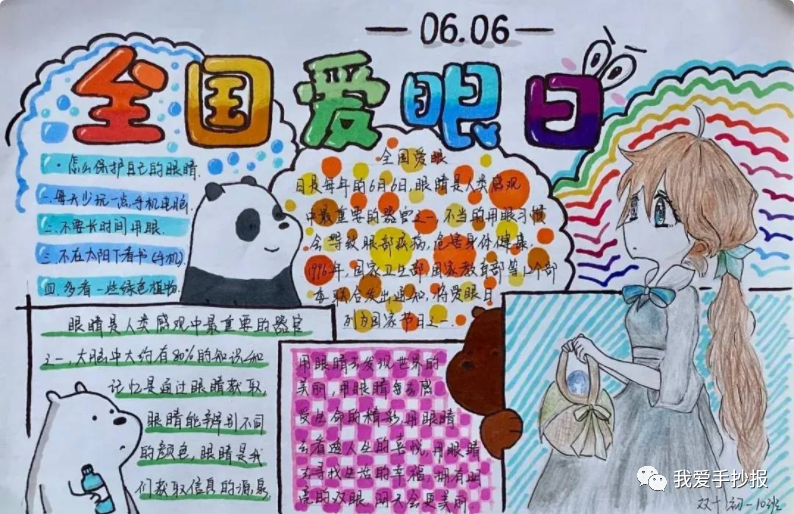 06.06
全国爱眼日
·怎么保护自己的眼睛.
一.每天少玩一点手机电脑.
二.不要长时间用眼.
三.不在太阳下看书(手机).
四.多看一些绿色植物.
全国爱眼
日是每年的6月6日.眼睛是人类感观
中最重要的器官之一.不当的用眼习惯
会导致眼部疾病,危害身体健康.
1996年,国家卫生部,国家教育部等12个部
委联合发出通知,将爱眼日
列为国家节日之一.
眼睛是人类感观中最重要的器官
之一,大脑中大约有80%的知识和
记忆是通过眼睛获取,
眼睛能辨别不同
的颜色,眼睛是我
们获取信息的源泉.
用眼睛去发现世界的
美丽,用眼睛去感
受生命的精彩,用眼睛
去看透人生的喜悦,用眼睛
去寻找生活的幸福,拥有明
亮的双眼,明天会更美丽.
我爱手抄报
双十初一10班